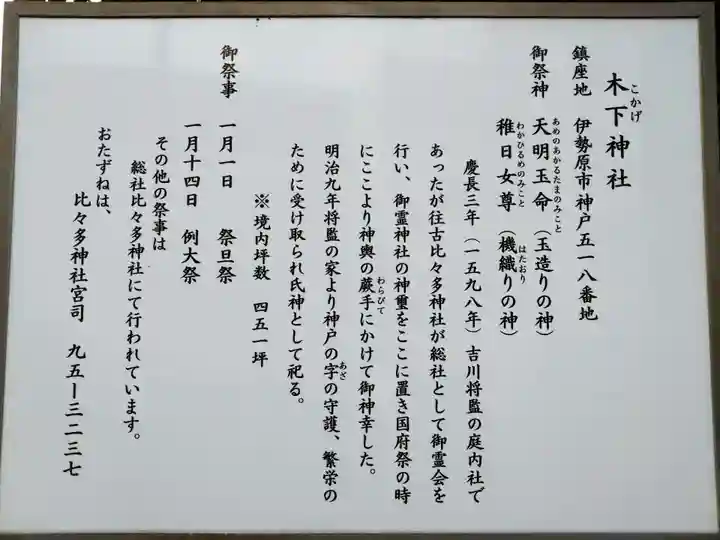 木下神社
こかげ
鎮座地 伊勢原市神戸五一八番地
御祭神 天明玉命（玉造りの神）
あめのあかるたまのみこと
稚日女尊（機織りの神）
わかひるめのみこと はたおり
慶長三年（一五九八年）吉川将監の庭内社で
あったが往古比々多神社が総社として御霊会を
行い、御霊神社の神璽をここに置き国府祭の時
にここより神輿の蕨手にかけて御神幸した。
わらびて
明治九年将監の家より神戸の字の守護、繁栄の
あざ
ために受け取られ氏神として祀る。
※境内坪数 四五一坪
御祭事 一月一日 祭旦祭
一月十四日 例大祭
その他の祭事は
総社比々多神社にて行われています。
おたずねは、
比々多神社宮司 九五ー三二三七